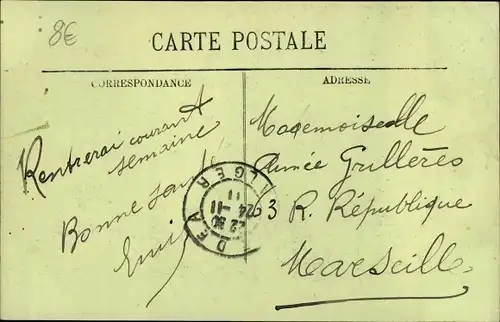 8€
CARTE POSTALE
CORRESPONDANCE
ADRESSE
Rentrerai courant
semaine
Bonne santé
Mademoiselle
Aimée Grillères
63 R. République
Marseille
ALGER
22 30
24 -11
11